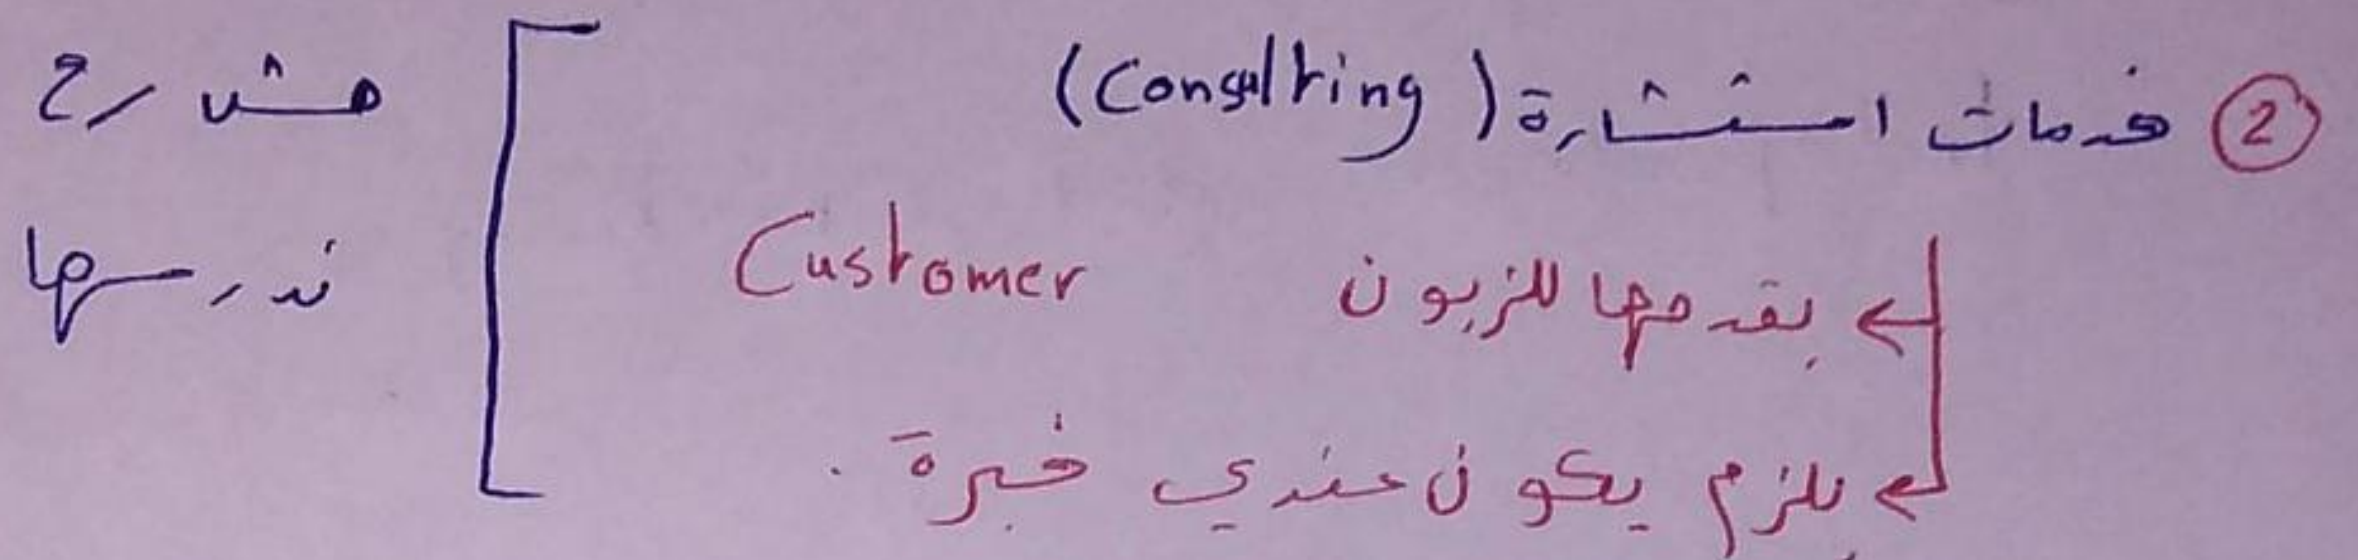 ② خدمات استشارة (Consulting)
بقدمها للزبون Customer
بلزم يكون عندي خبرة .
مش رح
ندرسها